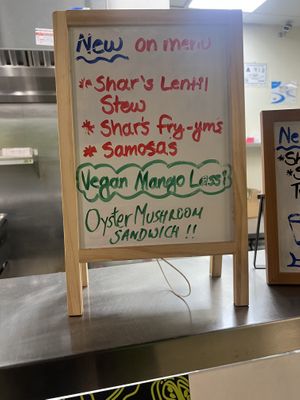 New on menu
* Shar's Lentil
Stew
* Shar's fry-yms
* Samosas
Vegan Mango Lassi
Oyster Mushroom
Sandwich !!